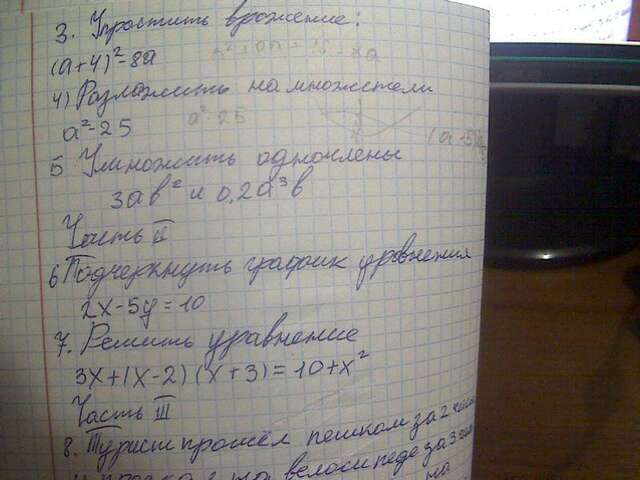 3. Упростить врожение:
(a+4)²-8a
4) Разложить на множетели
a²-25
a²-25
5 Умножить одночлены
3ab² и 0,2a³b
Часть II
6 Подчеркнуть график уравнения
2x-5y=10
7. Решить уравнение
3x+(x-2)(x+3)=10+x²
Часть III
8. Турист прошёл пешком за 2 часа
на велосипеде за 3
на